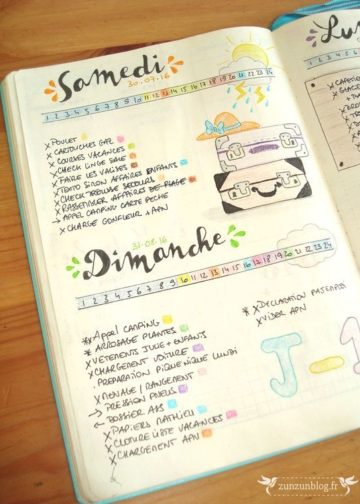 Samedi
30.07.16
1 2 3 4 5 6 7 8 9 10 11 12 13 14 15 16 17 18 19 20 21 22 23 24
x POULET
x CARTOUCHES GAZ
x COURSES VACANCES
x CHECK LINGE SALE
x FAIRE LES VALISES
x TEXTO SIMON AFFAIRES ENFANTS
x CHECK TROUSSE SECOURS
x RASSEMBLER AFFAIRES DE PLAGE
→ APPEL CAMPING CARTE PECHE
x CHARGE GONFLEUR + APN
Dimanche
31.08.16
1 2 3 4 5 6 7 8 9 10 11 12 13 14 15 16 17 18 19 20 21 22 23 24
*x Appel CAMPING
*x ARROSAGE PLANTES
x VETEMENTS JULIE + ENFANTS
x CHARGEMENT VOITURE
PREPARATION PIQUE NIQUE LUNDI
x MENAGE / RANGEMENT
→ PRESSION PNEUS
← DOSSIER
x PAPIERS MATHIEU
x CLOTURE LISTE VACANCES
x CHARGEMENT APN
*x DECLARATION
x VIDER APN
J-1
Lu
zunzunblog.fr